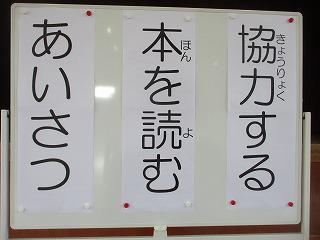 協力する
きょうりょく
本を読む
ほん
よ
あいさつ